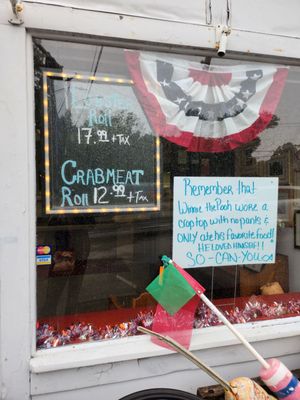 LOBSTER
Roll
17.99 + Tax
CRABMEAT
Roll 12.99 + Tax
Remember that
Winnie the Pooh wore a
crop top with no pants &
ONLY ate his favorite food!
HE LOVED HIMSELF!!
SO-CAN-YOU